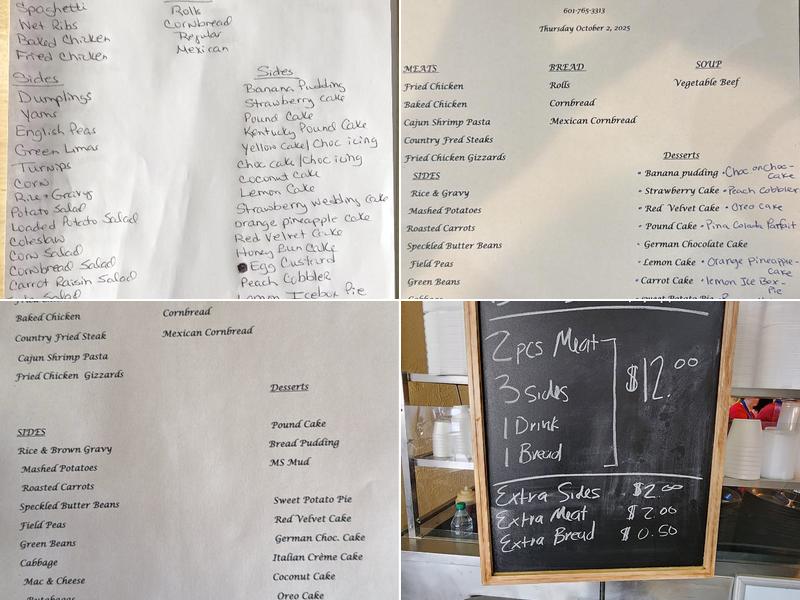 Spaghetti
Net Ribs
Baked Chicken
Fried Chicken
Rolls
Cornbread
Regular
Mexican
Sides
Dumplings
Yams
English Peas
Green Limas
Turnips
Corn
Rice + Gravy
Potato Salad
Loaded Potato Salad
Coleslaw
Corn Salad
Cornbread Salad
Carrot Raisin Salad
Salad
Sides
Banana Pudding
Strawberry Cake
Pound Cake
Kentucky Pound Cake
Yellow Cake/Choc icing
Choc cake/Choc icing
Coconut Cake
Lemon Cake
Strawberry wedding cake
orange pineapple cake
Red Velvet Cake
Honey Bun Cake
Egg Custard
Peach Cobbler
Lemon Icebox Pie
601-765-3313
Thursday October 2, 2025
MEATS
Fried Chicken
Baked Chicken
Cajun Shrimp Pasta
Country Fred Steaks
Fried Chicken Gizzards
SIDES
Rice & Gravy
Mashed Potatoes
Roasted Carrots
Speckled Butter Beans
Field Peas
Green Beans
Cabbage
BREAD
Rolls
Cornbread
Mexican Cornbread
SOUP
Vegetable Beef
Desserts
• Banana pudding • Choc on Choc-
Cake
• Strawberry Cake • Peach Cobbler
• Red Velvet Cake • Oreo cake
• Pound Cake • Pina Colada Parfait
• German Chocolate Cake
• Lemon Cake • Orange Pineapple-
cake
• Carrot Cake • lemon Ice Box-
Pie
• sweet Potato Pie
Fried Chicken
Baked Chicken
Country Fried Steak
Cajun Shrimp Pasta
Fried Chicken Gizzards
Cornbread
Mexican Cornbread
SIDES
Rice & Brown Gravy
Mashed Potatoes
Roasted Carrots
Speckled Butter Beans
Field Peas
Green Beans
Cabbage
Mac & Cheese
Rutabagas
Desserts
Pound Cake
Bread Pudding
MS Mud
Sweet Potato Pie
Red Velvet Cake
German Choc. Cake
Italian Crème Cake
Coconut Cake
Oreo Cake
2pcs Meat
3 Sides
1 Drink
1 Bread
$12.00
Extra Sides $2.00
Extra Meat $2.00
Extra Bread $0.50